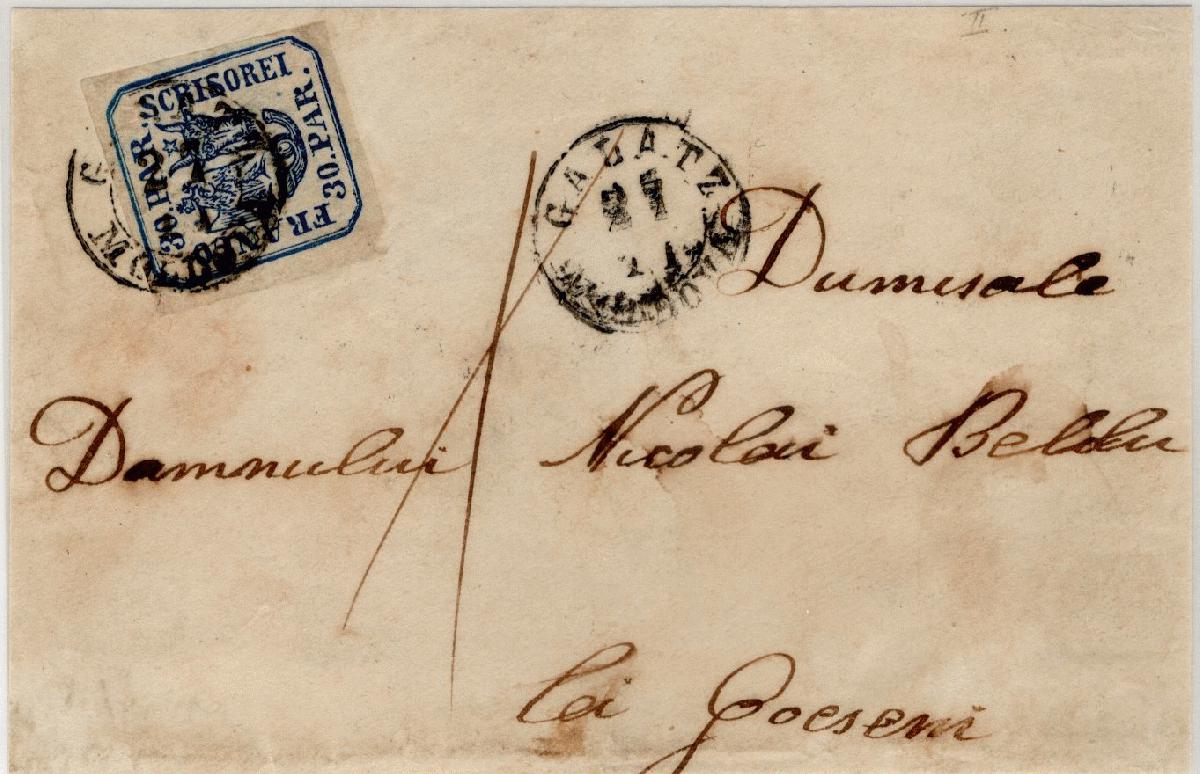 II
SCRISOREI
30.PAR.
FRANCO
30.PAR.
GALATZ
MOLDOVA
Dumisale
Damnului Nicolai Beldu
la Focseni